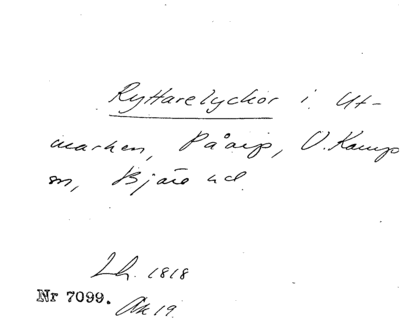 Ryttarelyckor i Ut-
marken, Påarp, V. Karup
sn, Bjäre hd.
Lh. 1818
Nr 7099. Ak 19.